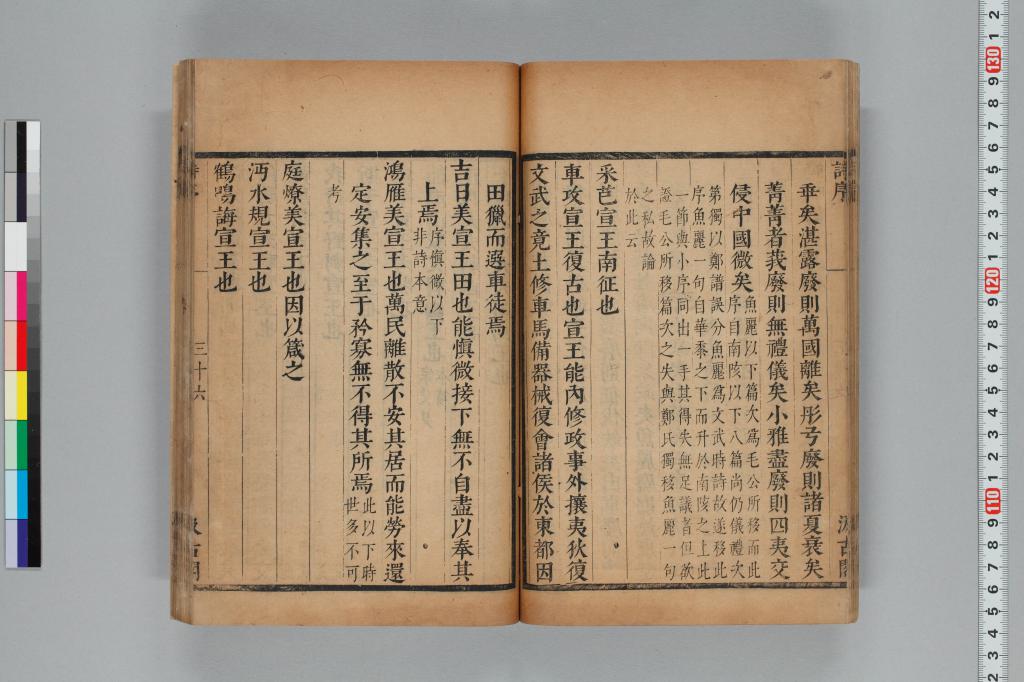 詩序
汲古閣
垂矣湛露廢則萬國離矣彤弓廢則諸夏衰矣
菁菁者莪廢則無禮儀矣小雅盡廢則四夷交
侵中國微矣
魚麗以下篇次爲毛公所移而此
序自南陔以下八篇尚仍儀禮次
第獨以鄭譜誤分魚麗爲文武時詩故遂移此
序魚麗一句自華黍之下而升於南陔之上此
一節與小序同出一手其得失無足議者但欲
證毛公所移篇次之失與鄭氏獨移魚麗一句
之私故論
於此云
采芑宣王南征也
車攻宣王復古也宣王能內修政事外攘夷狄復
文武之竟土修車馬備器械復會諸侯於東都因
田獵而選車徒焉
吉日美宣王田也能愼微接下無不自盡以奉其
上焉
序愼微以下
非詩本意
鴻雁美宣王也萬民離散不安其居而能勞來還
定安集之至于矜寡無不得其所焉
此以下時
世多不可
考
庭燎美宣王也因以箴之
沔水規宣王也
鶴鳴誨宣王也
三十六